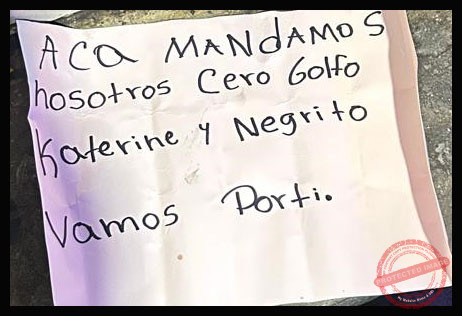 ACa MANdAMOS
nosotros Cero Golfo
Katerine y Negrito
Vamos Porti.
PROTECTED IMAGE